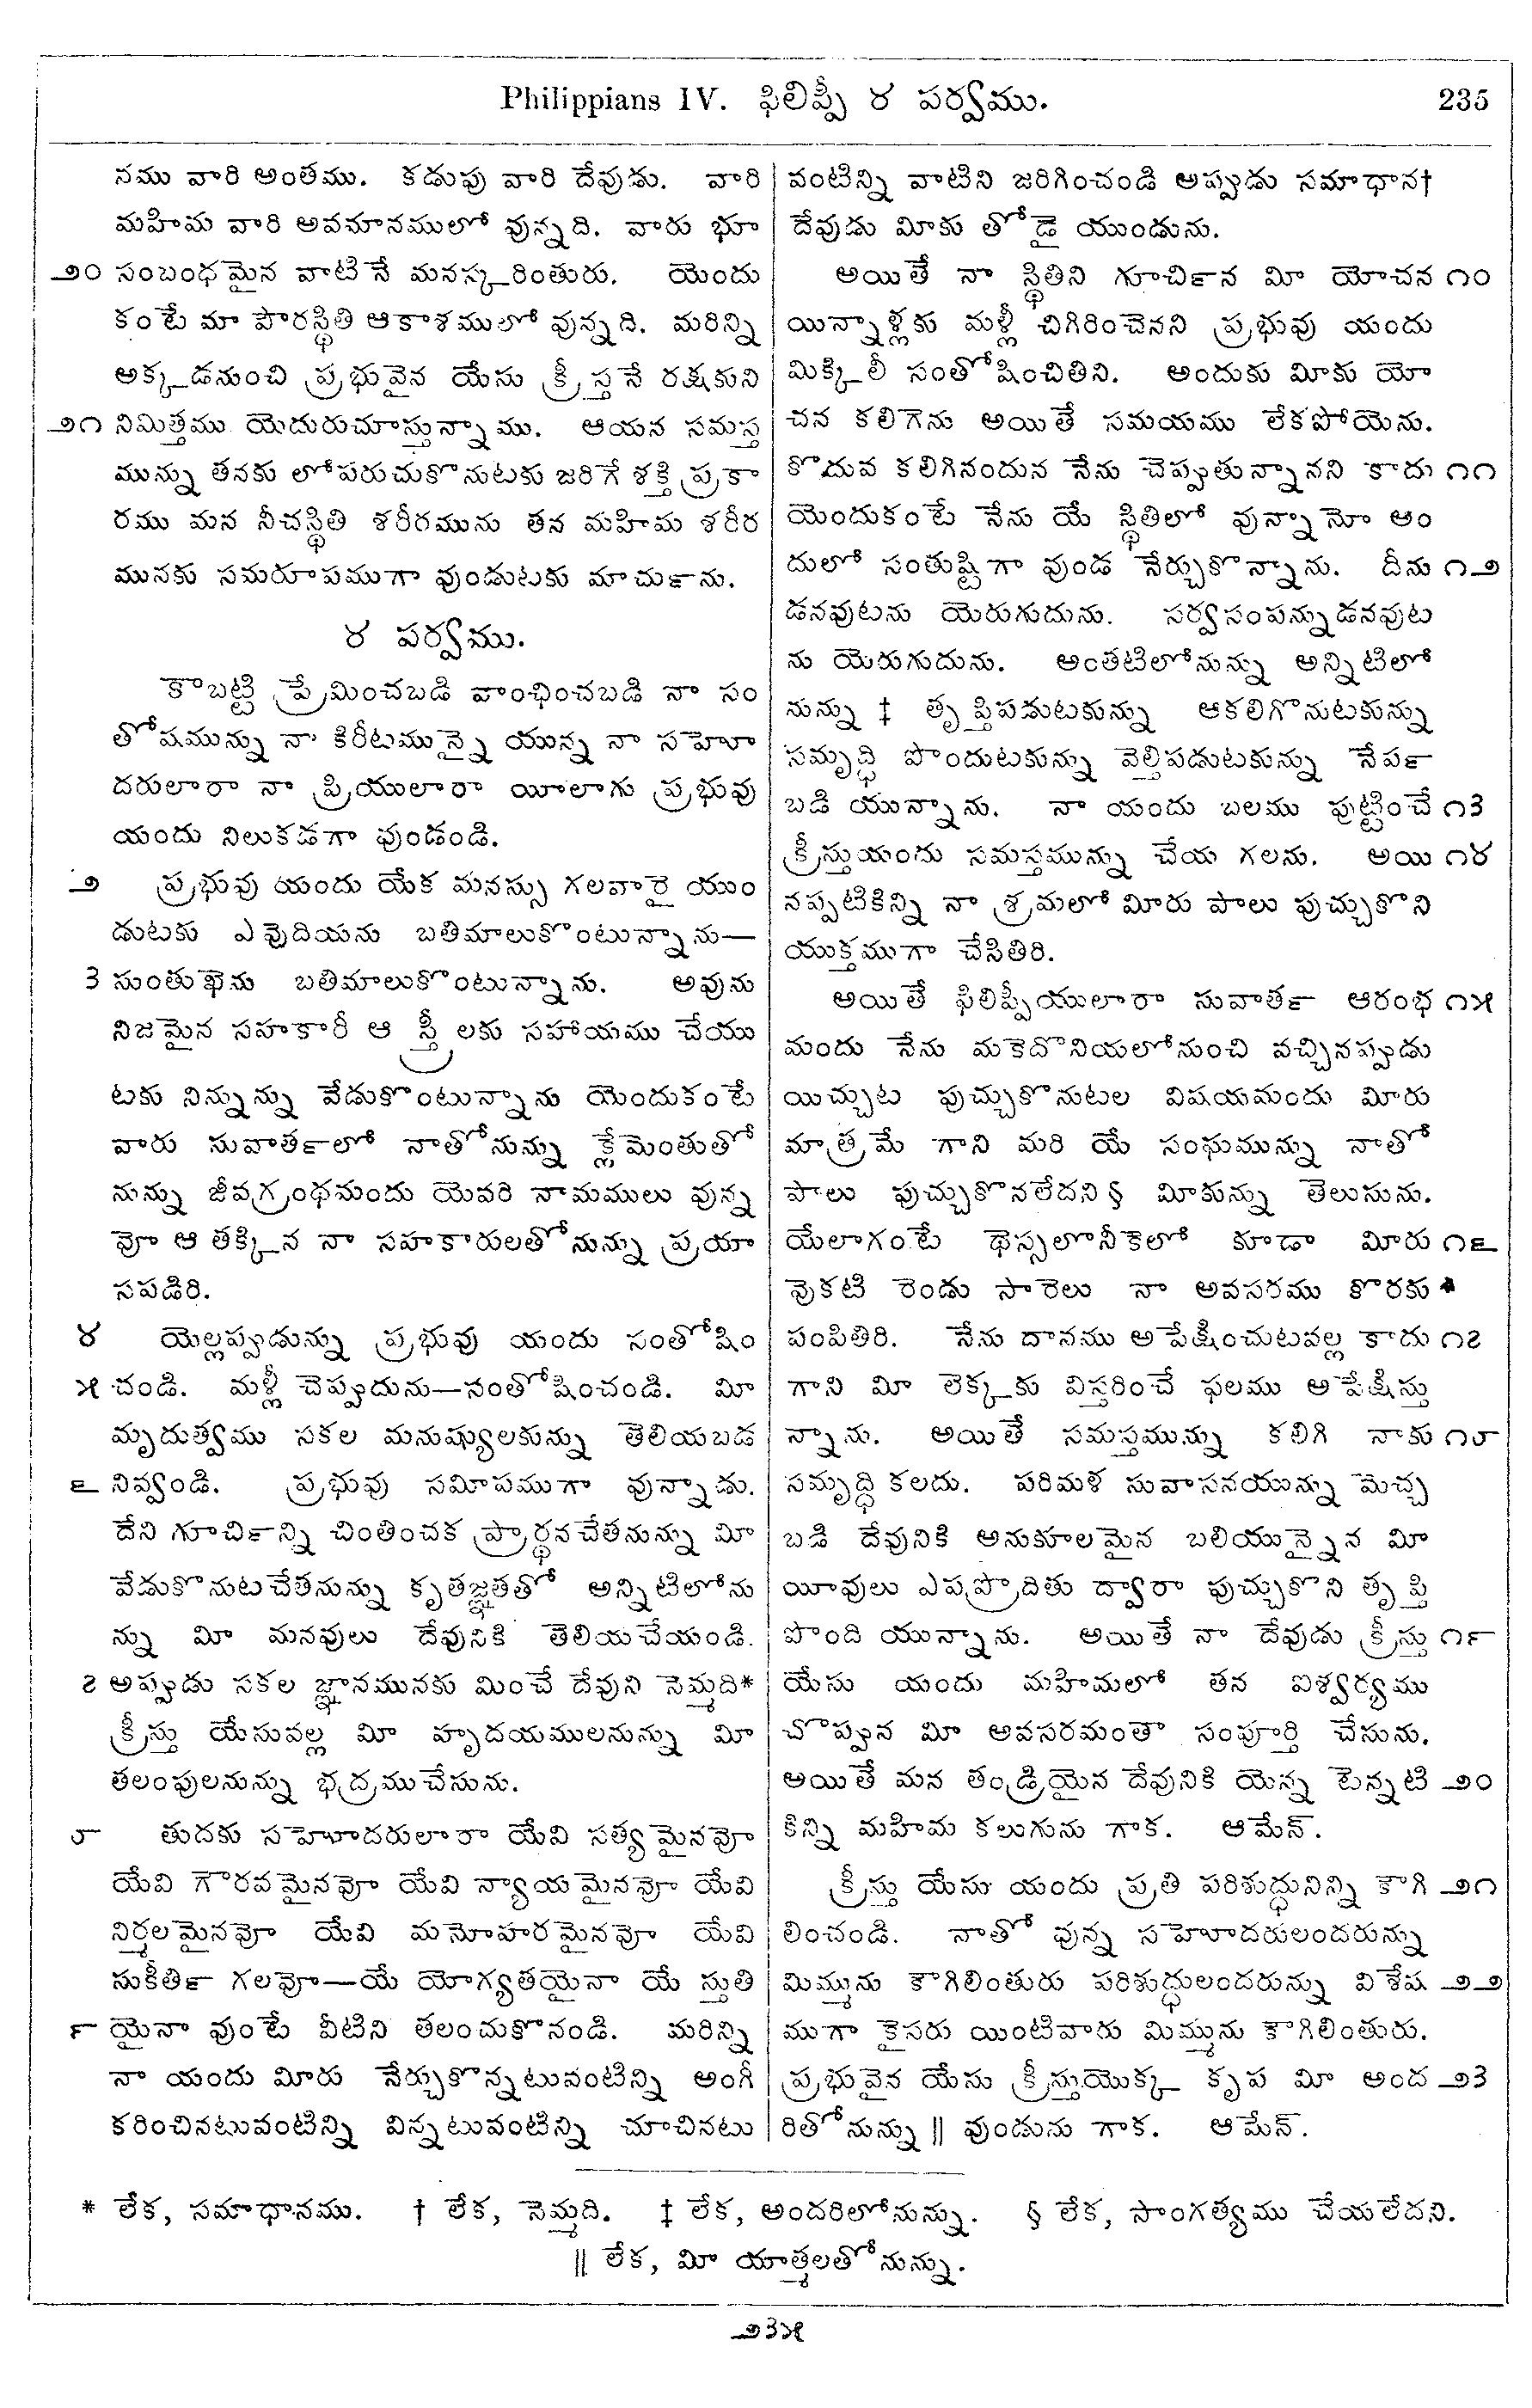 Philippians IV. ఫిలిప్పీ ౪ పర్వము. 235
నము వారి అంతము. కడుపు వారి దేవుడు. వారి
మహిమ వారి అవమానములో వున్నది. వారు భూ
౨౦ సంబంధమైన వాటినే మనస్కరింతురు. యెందు
కంటే మా పౌరస్థితి ఆకాశములో వున్నది. మరిన్ని
అక్కడనుంచి ప్రభువైన యేసు క్రీస్తనే రక్షకుని
౨౧ నిమిత్తము యెదురుచూస్తున్నాము. ఆయన సమస్త
మున్ను తనకు లోపరుచుకొనుటకు జరిగే శక్తి ప్రకా
రము మన నీచస్థితి శరీరమును తన మహిమ శరీర
మునకు సమరూపముగా వుండుటకు మాచుఁను.
౪ పర్వము.
కాబట్టి ప్రేమించబడి వాంఛించబడి నా సం
తోషమున్ను నా కిరీటమున్నై యున్న నా సహో
దరులారా నా ప్రియులారా యీలాగు ప్రభువు
యందు నిలుకడగా వుండండి.
౨ ప్రభువు యందు యేక మనస్సు గలవారై యుం
డుటకు ఎవొదియను బతిమాలుకొంటున్నాను—
౩ సుంతుఖెను బతిమాలుకొంటున్నాను. అవును
నిజమైన సహకారీ ఆ స్త్రీలకు సహాయము చేయు
టకు నిన్నున్ను వేడుకొంటున్నాను యెందుకంటే
వారు సువాతఁలో నాతోనున్ను క్లేమెంతుతో
నున్ను జీవగ్రంథమందు యెవరి నామములు వున్న
వో ఆ తక్కిన నా సహకారులతోనున్ను ప్రయా
సపడిరి.
౪ యెల్లప్పుడున్ను ప్రభువు యందు సంతోషిం
౫ చండి. మళ్లీ చెప్పుదును—సంతోషించండి. మీ
మృదుత్వము సకల మనుష్యులకున్ను తెలియబడ
౬ నివ్వండి. ప్రభువు సమీపముగా వున్నాడు.
దేని గూచిఁన్ని చింతించక ప్రార్థనచేతనున్ను మీ
వేడుకొనుటచేతనున్ను కృతజ్ఞతతో అన్నిటిలోను
న్ను మీ మనవులు దేవునికి తెలియచేయండి.
౭ అప్పుడు సకల జ్ఞానమునకు మించే దేవుని నెమ్మది*
క్రీస్తు యేసువల్ల మీ హృదయములనున్ను మీ
తలంపులనున్ను భద్రముచేసును.
౮ తుదకు సహోదరులారా యేవి సత్యమైనవో
యేవి గౌరవమైనవో యేవి న్యాయమైనవో యేవి
నిర్మలమైనవో యేవి మనోహరమైనవో యేవి
సుకీతిఁ గలవో—యే యోగ్యతయైనా యే స్తుతి
౯ యైనా వుంటే వీటిని తలంచుకొనండి. మరిన్ని
నా యందు మీరు నేర్చుకొన్నటువంటిన్ని అంగీ
కరించినటువంటిన్ని విన్నటువంటిన్ని చూచినటు
వంటిన్ని వాటిని జరిగించండి అప్పుడు సమాధాన†
దేవుడు మీకు తోడై యుండును.
అయితే నా స్థితిని గూచిఁన మీ యోచన ౧౦
యిన్నాళ్లకు మళ్లీ చిగిరించెనని ప్రభువు యందు
మిక్కిలీ సంతోషించితిని. అందుకు మీకు యో
చన కలిగెను అయితే సమయము లేకపోయెను.
కొదువ కలిగినందున నేను చెప్పుతున్నానని కాదు ౧౧
యెందుకంటే నేను యే స్థితిలో వున్నానో అం
దులో సంతుష్టిగా వుండ నేర్చుకొన్నాను. దీను ౧౨
డనవుటను యెరుగుదును. సర్వసంపన్నుడనవుట
ను యెరుగుదును. అంతటిలోనున్ను అన్నిటిలో
నున్ను ‡ తృప్తిపడుటకున్ను ఆకలిగొనుటకున్ను
సమృద్ధి పొందుటకున్ను వెల్తిపడుటకున్ను నేపఁ
బడి యున్నాను. నా యందు బలము పుట్టించే ౧౩
క్రీస్తుయందు సమస్తమున్ను చేయ గలను. అయి ౧౪
నప్పటికిన్ని నా శ్రమలో మీరు పాలు పుచ్చుకొని
యుక్తముగా చేసితిరి.
అయితే ఫిలిప్పీయులారా సువాతఁ ఆరంభ ౧౫
మందు నేను మకెదొనియలోనుంచి వచ్చినప్పుడు
యిచ్చుట పుచ్చుకొనుటల విషయమందు మీరు
మాత్రమే గాని మరి యే సంఘమున్ను నాతో
పాలు పుచ్చుకొనలేదని§ మీకున్ను తెలుసును.
యేలాగంటే థెస్సలొనీకెలో కూడా మీరు ౧౬
వొకటి రెండు సారెలు నా అవసరము కొరకు
పంపితిరి. నేను దానము అపేక్షించుటవల్ల కాదు ౧౭
గాని మీ లెక్కకు విస్తరించే ఫలము అపేక్షిస్తు
న్నాను. అయితే సమస్తమున్ను కలిగి నాకు ౧౮
సమృద్ధి కలదు. పరిమళ సువాసనయున్ను మెచ్చ
బడి దేవునికి అనుకూలమైన బలియున్నైన మీ
యీవులు ఎపప్రొదితు ద్వారా పుచ్చుకొని తృప్తి
పొంది యున్నాను. అయితే నా దేవుడు క్రీస్తు ౧౯
యేసు యందు మహిమలో తన ఐశ్వర్యము
చొప్పున మీ అవసరమంతా సంపూర్తి చేసును.
అయితే మన తండ్రియైన దేవునికి యెన్నటెన్నటి ౨౦
కిన్ని మహిమ కలుగును గాక. ఆమేన్.
క్రీస్తు యేసు యందు ప్రతి పరిశుద్ధునిన్ని కౌగి ౨౧
లించండి. నాతో వున్న సహోదరులందరున్ను
మిమ్మును కౌగిలింతురు పరిశుద్ధులందరున్ను విశేష ౨౨
ముగా కైసరు యింటివారు మిమ్మును కౌగిలింతురు.
ప్రభువైన యేసు క్రీస్తుయొక్క కృప మీ అంద ౨౩
రితోనున్ను || వుండును గాక. ఆమేన్.
* లేక, సమాధానము. † లేక, నెమ్మది. ‡ లేక, అందరిలోనున్ను. § లేక, సాంగత్యము చేయలేదని.
|| లేక, మీ యాత్మలతోనున్ను.
౨౩౫